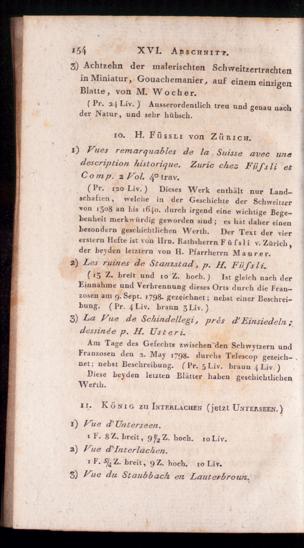 154 XVI. Abschnitt.
3) Achtzehn der malerischten Schweitzertrachten
in Miniatur, Gouachemanier, auf einem einzigen
Blatte, von M. Wocher.
(Pr. 24 Liv.) Ausserordentlich treu und genau nach
der Natur, und sehr hübsch.
10. H. Füssli von Zürich.
1) Vues remarquables de la Suisse avec une
description historique. Zuric chez Füssli et
Comp. 2 Vol. 4º trav.
(Pr. 120 Liv.) Dieses Werk enthält nur Land-
schaften, welche in der Geschichte der Schweitzer
von 1308 an bis 1640. durch irgend eine wichtige Bege-
benheit merkwürdig geworden sind; es hat daher einen
besondern geschichtlichen Werth. Der Text der vier
erstern Hefte ist von Hrn. Rathsherrn Füssli v. Zürich,
der beyden letztern von H. Pfarrherrn Maurer.
2) Les ruines de Stantzstad, p. H. Füssli.
(15 Z. breit und 10 Z. hoch.) Ist gleich nach der
Einnahme und Verbrennung dieses Orts durch die Fran-
zosen am 9. Sept. 1798. gezeichnet; nebst einer Beschrei-
bung. (Pr. 4 Liv. braun 3 Liv.)
3) La Vue de Schindellegi, près d'Einsiedeln;
dessinée p. H. Usteri.
Am Tage des Gefechts zwischen den Schwytzern und
Franzosen den 2. May 1798. durchs Telescop gezeich-
net; nebst Beschreibung. (Pr. 5 Liv. braun 4 Liv.)
Diese beyden letzten Blätter haben geschichtlichen
Werth.
11. König zu Interlachen (jetzt Unterseen.)
1) Vue d'Unterseen.
1 F. 8 Z. breit, 9 Z. hoch. 10 Liv.
2) Vue d'Interlachen.
1 F. Z. breit, 9 Z. hoch. 10 Liv.
3) Vue du Staubbach en Lauterbroun.